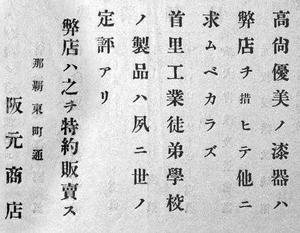 高尙優美ノ漆器ハ
弊店ヲ措ヒテ他ニ
求ムベカラズ
首里工業徒弟學校
ノ製品ハ夙ニ世ノ
定評アリ
弊店ハ之ヲ特約販賣ス
那覇東町通
阪元商店